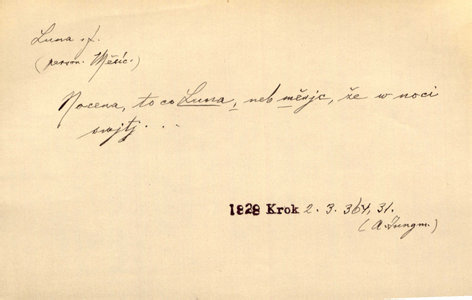 Luna, f.
(person. Měsíc.)
Nocena, to co Luna, neb měsjc, že w noci
swjtj . . .
1828 Krok 2. 3. 364, 31.
(A. Jungm.)